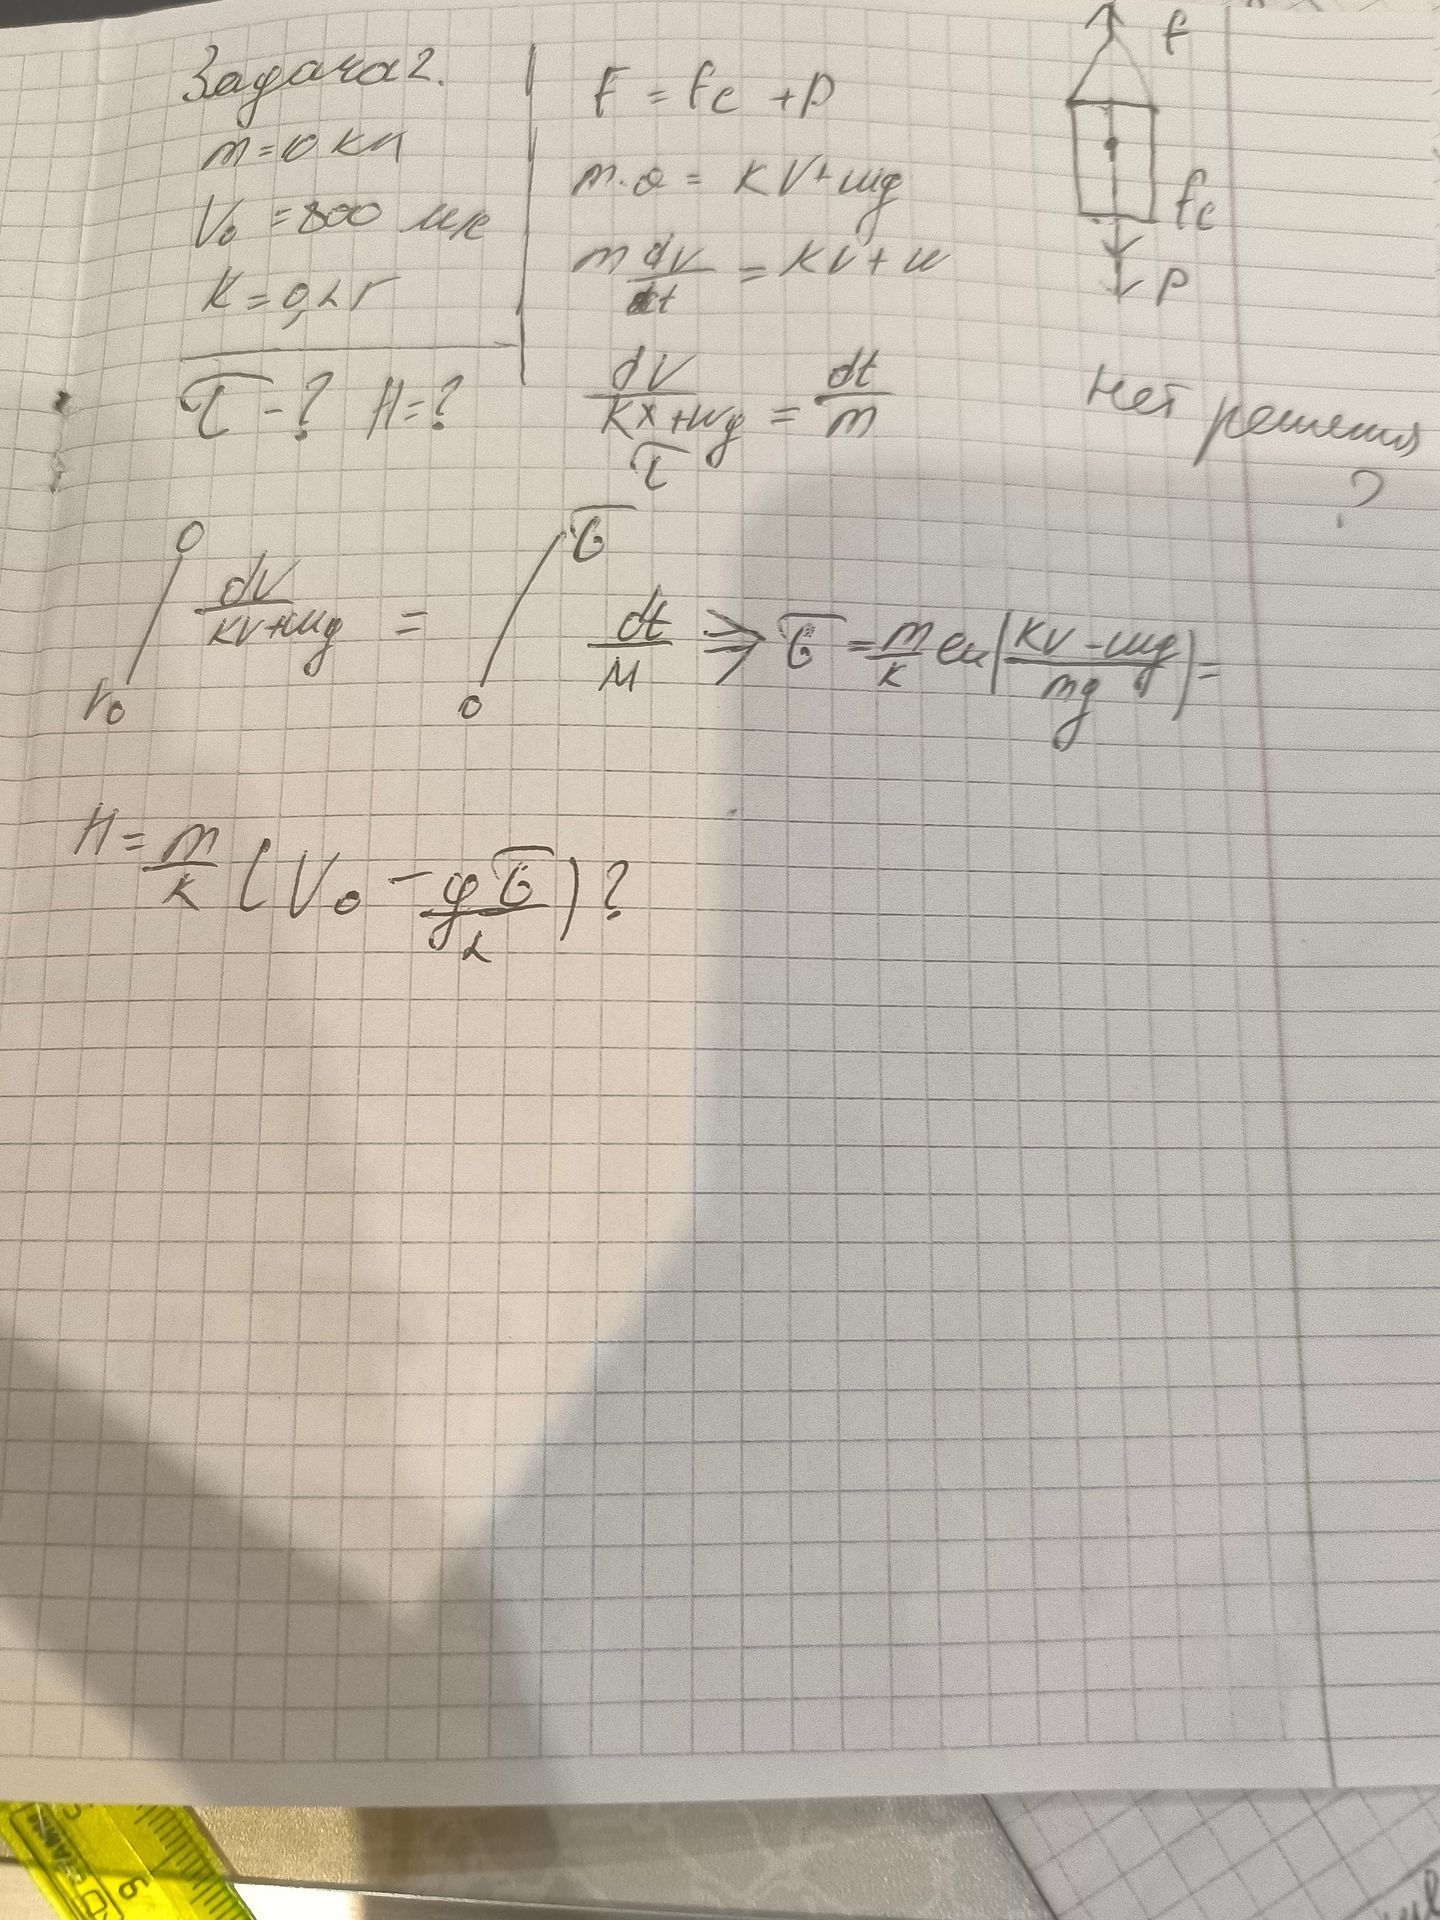 Задача 2.
m = 10 кг
V₀ = 800 м/с
K = 0,2 г
τ - ? H = ?
F = Fc + P
m·a = KV + mg
m dV/dt = KV + m
dV/(KX + mg) = dt/m
τ
F
Fc
P
нет решения
?
0
V₀
dV/(KV + mg) =
τ
0
dt/M ⇒ τ = m/K ln(KV - mg/mg) =
H = m/K (V₀ - gτ/2) ?
6